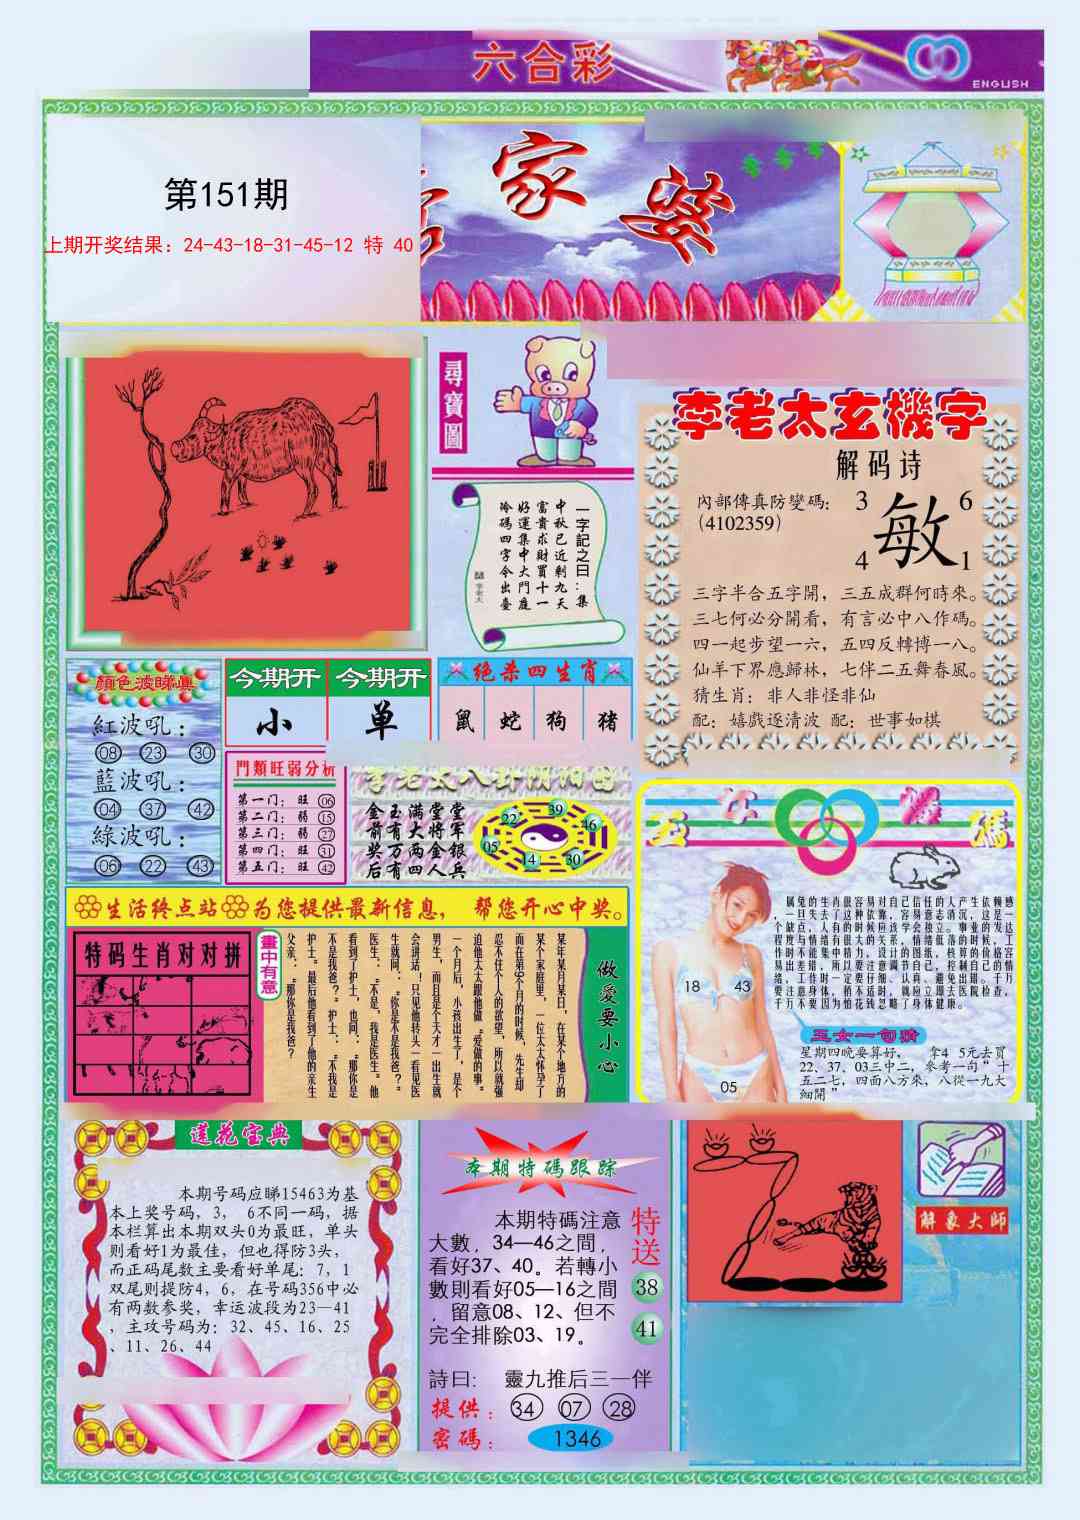 六合彩
ENGLISH
第151期
上期开奖结果：24-43-18-31-45-12 特 40
家婆
尋寶圖
一字記之曰：集
中秋已近剩九天
富貴求財買十一
好運集中大門庭
冷碼四字令出臺
李老太玄機字
解码诗
內部傳真防變碼：
(4102359)
3 6
敏
4 1
三字半合五字開，三五成群何時來。
三七何必分開看，有言必中八作碼。
四一起步望一六，五四反轉博一八。
仙羊下界應歸林，七伴二五舞春風。
猜生肖：非人非怪非仙
配：嬉戲逐清波 配：世事如棋
顏色波睇真
紅波吼：
08 23 30
藍波吼：
04 37 42
綠波吼：
06 22 43
今期开 今期开
小 单
绝杀四生肖
鼠 蛇 狗 猪
門類旺弱分析
第一门：旺 06
第二门：弱 15
第三门：弱 27
第四门：旺 31
第五门：旺 42
金玉满堂堂
前有大将军
奖万两金银
后有四人兵
22 39 46
05 14 30
生活终点站 为您提供最新信息， 帮您开心中奖。
特码生肖对对拼
畫中有意
做愛要小心
某年某月某日，在某个地方的
某个家庭里，一位太太怀孕了
而在第9个月的时候，先生却
忍不住个人的欲望，所以就强
迫他太太跟他做“爱做的事”
一个月后，小孩出生了，是个
男生，而且是个天才一出生就
会讲话！只见他转头一看见医
生就问：“你是不是我爸？”
医生：“不是，我是医生。”他
看到了护士，也问：“那你是
不是我爸？”护士：“不我是
护士。”最后他看到了他的亲生
父亲：“那你是我爸？
玉女 碼
属兔的生肖很容易对自己信任的人产生依赖感
，一旦失去了这种依靠，容易意志消沉，这是一
个缺点，人有的时候应该学会独立。事业的发达
程度与情绪有很大的关系，情绪低落的时候，工
作时不能集中精力，设计的图纸，核算的价格容
易出差错，所以要注意调节自己，控制自己的情
绪，工作时一定要仔细、认真、避免出错。千万
要注意身体，稍不适时，就应立即去医院检查，
千万不要因为怕花钱忽略了身体健康。
18 43
05
玉女一句猜
星期四晚要算好， 拿4 5元去買
22、37、03三中二，參考一句”十
五二七，四面八方來，八從一九大
細開”
莲花宝典
本期号码应睇15463为基
本上奖号码，3， 6不同一码，据
本栏算出本期双头0为最旺，单头
则看好1为最佳，但也得防3头，
而正码尾数主要看好单尾：7，1
双尾则提防4，6，在号码356中必
有两数参奖，幸运波段为23—41
，主攻号码为：32、45、16、25
、11、26、44
本期特碼跟踪
本期特碼注意
大數，34—46之間，
看好37、40。若轉小
數則看好05—16之間
，留意08、12、但不
完全排除03、19。
特送
38
41
詩曰： 靈九推后三一伴
提供：34 07 28
密碼：1346
解象大師